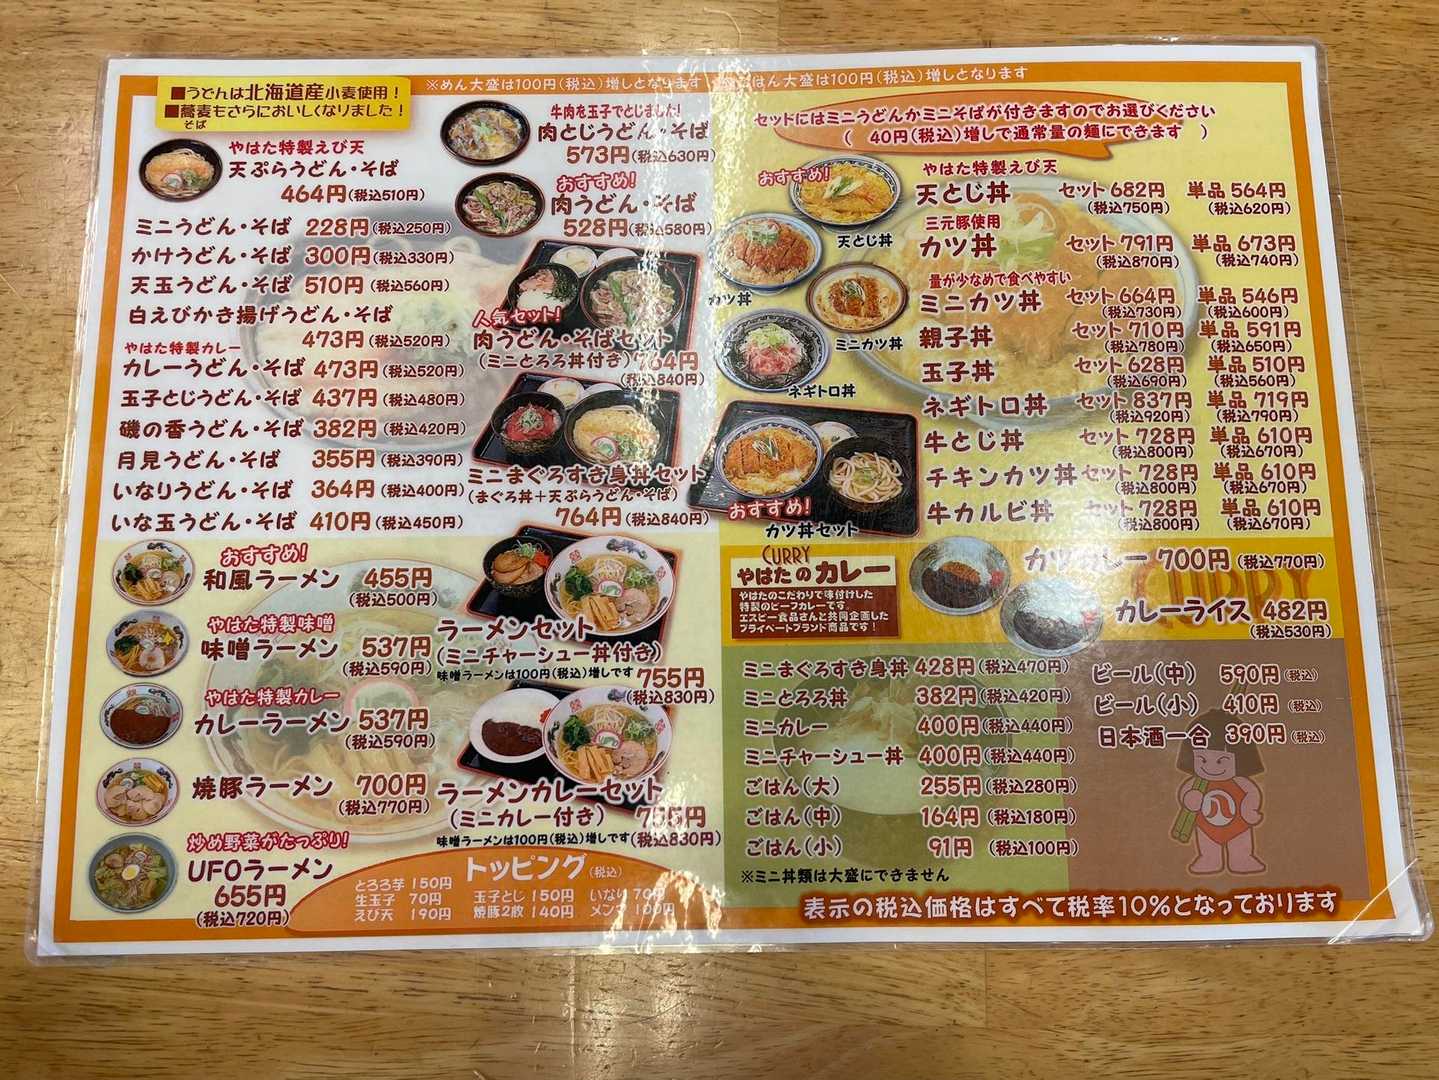 ※めん大盛は100円(税込)増しとなります
ごはん大盛は100円(税込)増しとなります
■うどんは北海道産小麦使用！
■蕎麦もさらにおいしくなりました！
そば
やはた特製えび天
天ぷらうどん・そば
464円(税込510円)
ミニうどん・そば 228円(税込250円)
かけうどん・そば 300円(税込330円)
天玉うどん・そば 510円(税込560円)
白えびかき揚げうどん・そば
473円(税込520円)
やはた特製カレー
カレーうどん・そば 473円(税込520円)
玉子とじうどん・そば 437円(税込480円)
磯の香うどん・そば 382円(税込420円)
月見うどん・そば 355円(税込390円)
いなりうどん・そば 364円(税込400円)
いな玉うどん・そば 410円(税込450円)
牛肉を玉子でとじました!
肉とじうどん・そば
573円(税込630円)
おすすめ!
肉うどん・そば
528円(税込580円)
人気セット!
肉うどん・そばセット
(ミニとろろ丼付き)764円
(税込840円)
ミニまぐろすき身丼セット
(まぐろ丼+天ぷらうどん・そば)
764円(税込840円)
おすすめ!
和風ラーメン 455円
(税込500円)
やはた特製味噌
味噌ラーメン 537円
(税込590円)
やはた特製カレー
カレーラーメン 537円
(税込590円)
焼豚ラーメン 700円
(税込770円)
炒め野菜がたっぷり!
UFOラーメン
655円
(税込720円)
ラーメンセット
(ミニチャーシュー丼付き)
味噌ラーメンは100円(税込)増しです 755円
(税込830円)
ラーメンカレーセット
(ミニカレー付き) 755円
味噌ラーメンは100円(税込)増しです(税込830円)
トッピング(税込)
とろろ芋 150円 玉子とじ 150円 いなり 70円
生玉子 70円 焼豚2枚 140円 メンマ 100円
えび天 190円
セットにはミニうどんかミニそばが付きますのでお選びください
( 40円(税込)増しで通常量の麺にできます )
おすすめ!
天とじ丼
カツ丼
ミニカツ丼
ネギトロ丼
おすすめ!
カツ丼セット
やはた特製えび天
天とじ丼 セット 682円 単品 564円
(税込750円) (税込620円)
三元豚使用
カツ丼 セット 791円 単品 673円
(税込870円) (税込740円)
量が少なめで食べやすい
ミニカツ丼 セット 664円 単品 546円
(税込730円) (税込600円)
親子丼 セット 710円 単品 591円
(税込780円) (税込650円)
玉子丼 セット 628円 単品 510円
(税込690円) (税込560円)
ネギトロ丼 セット 837円 単品 719円
(税込920円) (税込790円)
牛とじ丼 セット 728円 単品 610円
(税込800円) (税込670円)
チキンカツ丼 セット 728円 単品 610円
(税込800円) (税込670円)
牛カルビ丼 セット 728円 単品 610円
(税込800円) (税込670円)
CURRY
やはたのカレー
やはたのこだわりで味付けした
特製のビーフカレーです
エスビー食品さんと共同企画した
プライベートブランド商品です！
カツカレー 700円(税込770円)
CURRY
カレーライス 482円
(税込530円)
ミニまぐろすき身丼 428円(税込470円)
ミニとろろ丼 382円(税込420円)
ミニカレー 400円(税込440円)
ミニチャーシュー丼 400円(税込440円)
ごはん(大) 255円(税込280円)
ごはん(中) 164円(税込180円)
ごはん(小) 91円(税込100円)
※ミニ丼類は大盛にできません
ビール(中) 590円(税込)
ビール(小) 410円(税込)
日本酒一合 390円(税込)
八
表示の税込価格はすべて税率10%となっております